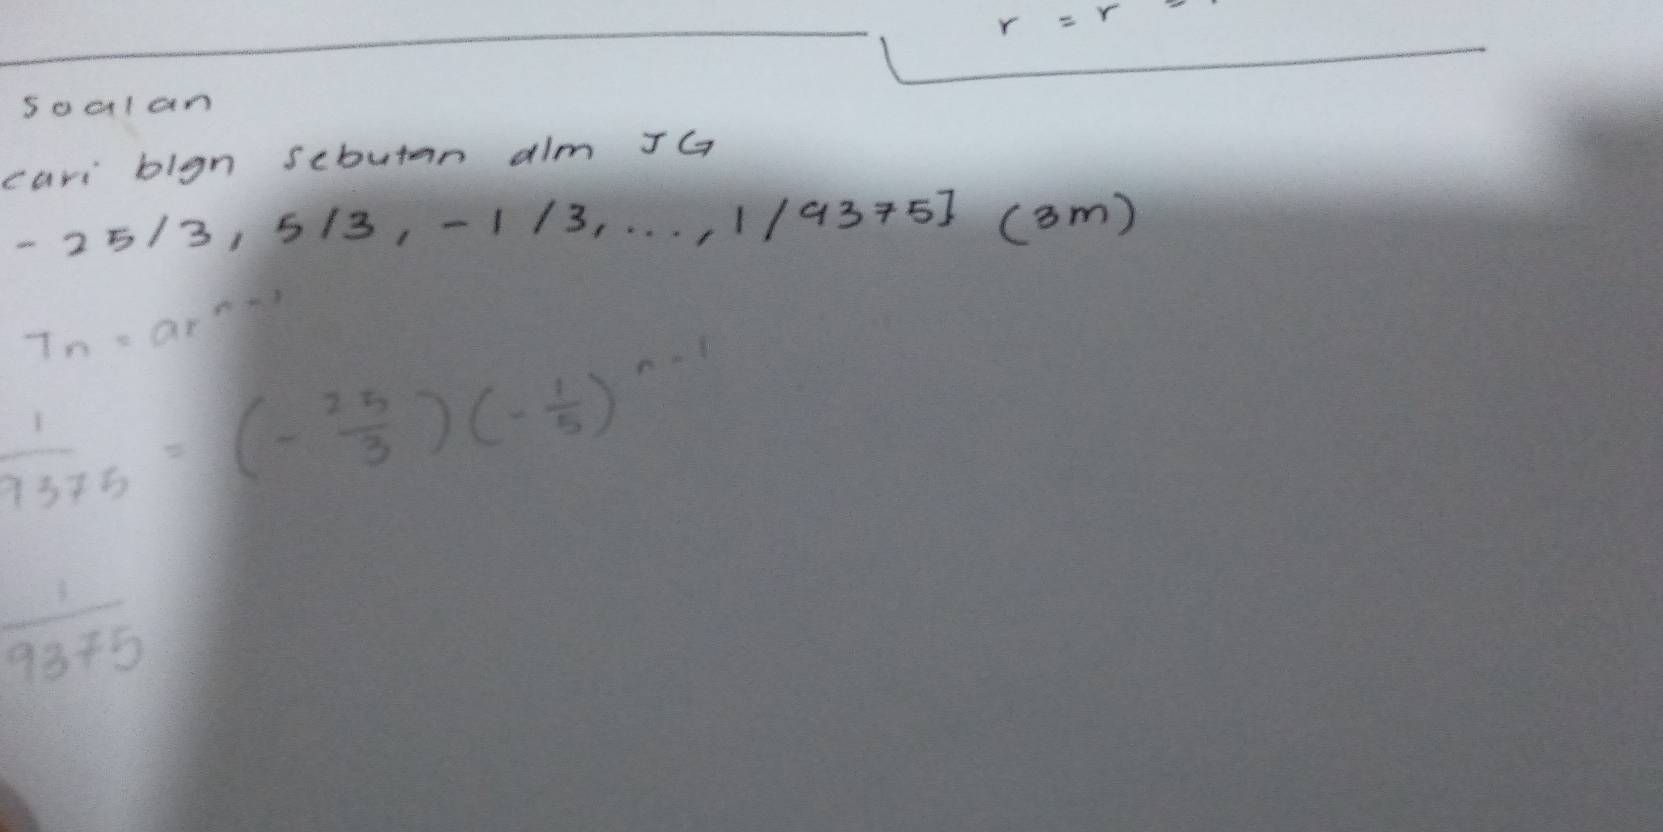 r = r =
soalan
cari blgn sebutan dlm JG
- 25/3, 5/3, -1/3, ..., 1/9375] (3m)
Tn = ar^{n-1}
1/9375 = (- 25/3)(- 1/5)^{n-1}
1/9375